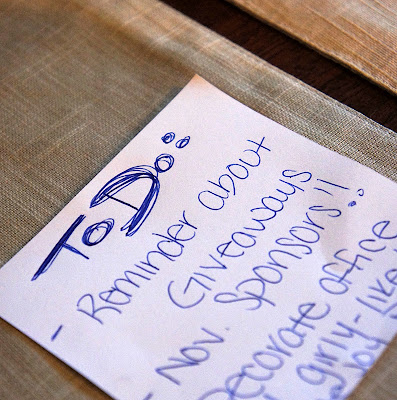 To Do:
- Reminder about
Giveaways
- Nov. Sponsors!!
- Decorate office
girly-like